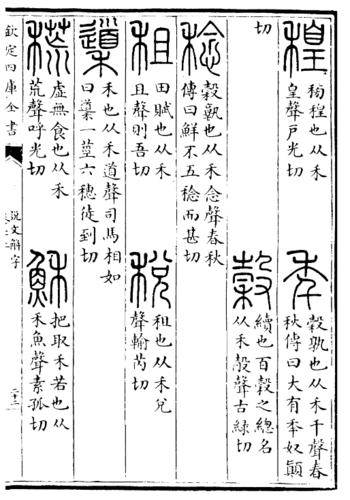 䅣
䅭䅣也从禾
皇聲戶光切
秊
穀孰也从禾千聲春
秋傳曰大有秊奴顛
切
穀
續也百穀之總名
从禾㱿聲古祿切
稔
穀孰也从禾念聲春秋
傳曰鮮不五稔而甚切
租
田賦也从禾
且聲則吾切
稅
租也从禾兌
聲輸芮切
䆃
禾也从禾道聲司馬相如
曰䆃一莖六穗徒到切
𥡃
虛無食也从禾
荒聲呼光切
穌
把取禾若也从
禾魚聲素孤切
欽定四庫全書
說文解字
二十三